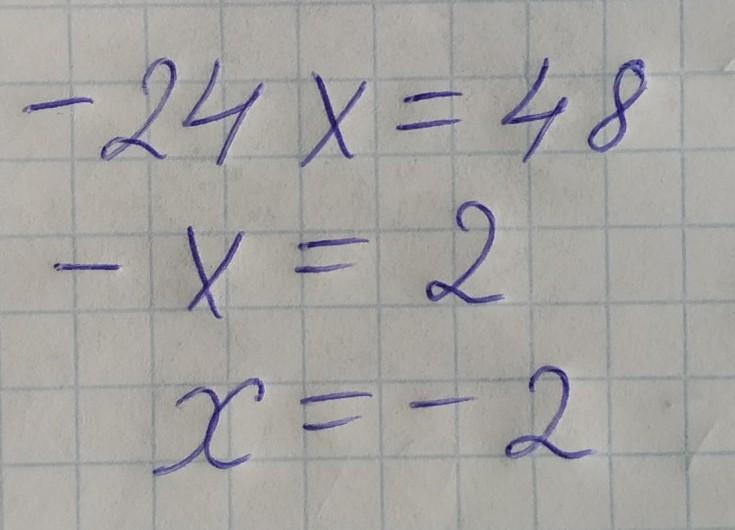 -24x=48
-x=2
x=-2